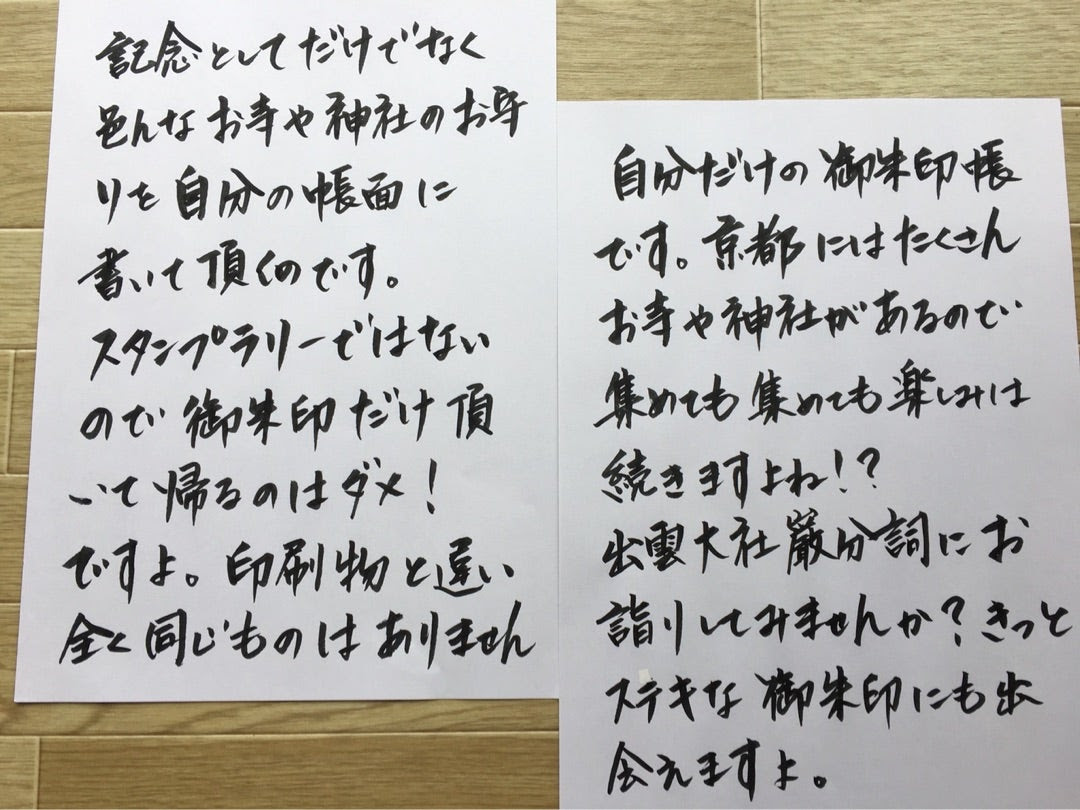 記念としてだけでなく
色んなお寺や神社のお守
りを自分の帳面に
書いて頂くのです。
スタンプラリーではない
ので御朱印だけ頂
いて帰るのはダメ!
ですよ。印刷物と違い
全く同じものはありません
自分だけの御朱印帳
です。京都にはたくさん
お寺や神社があるので
集めても集めても楽しみは
続きますよね!?
出雲大社巌分詞にお
詣りしてみませんか?きっと
ステキな御朱印にも出
会えますよ。